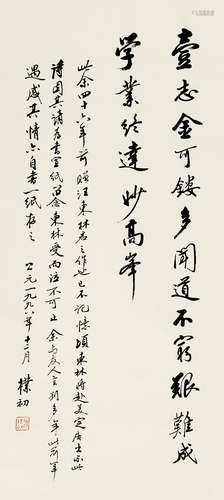 壹志金可鏤多聞道不窮艱難成
学業終達妙高峯
此余四十六年前贈汪東林君之作也已不記憶頃東林將赴美定居出示此
詩因其請為書宣紙留念東林受而泣不可止余与友人言别多年此前罕
遇感其情亦自書一紙存之 公元一九九八年十二月 樸初